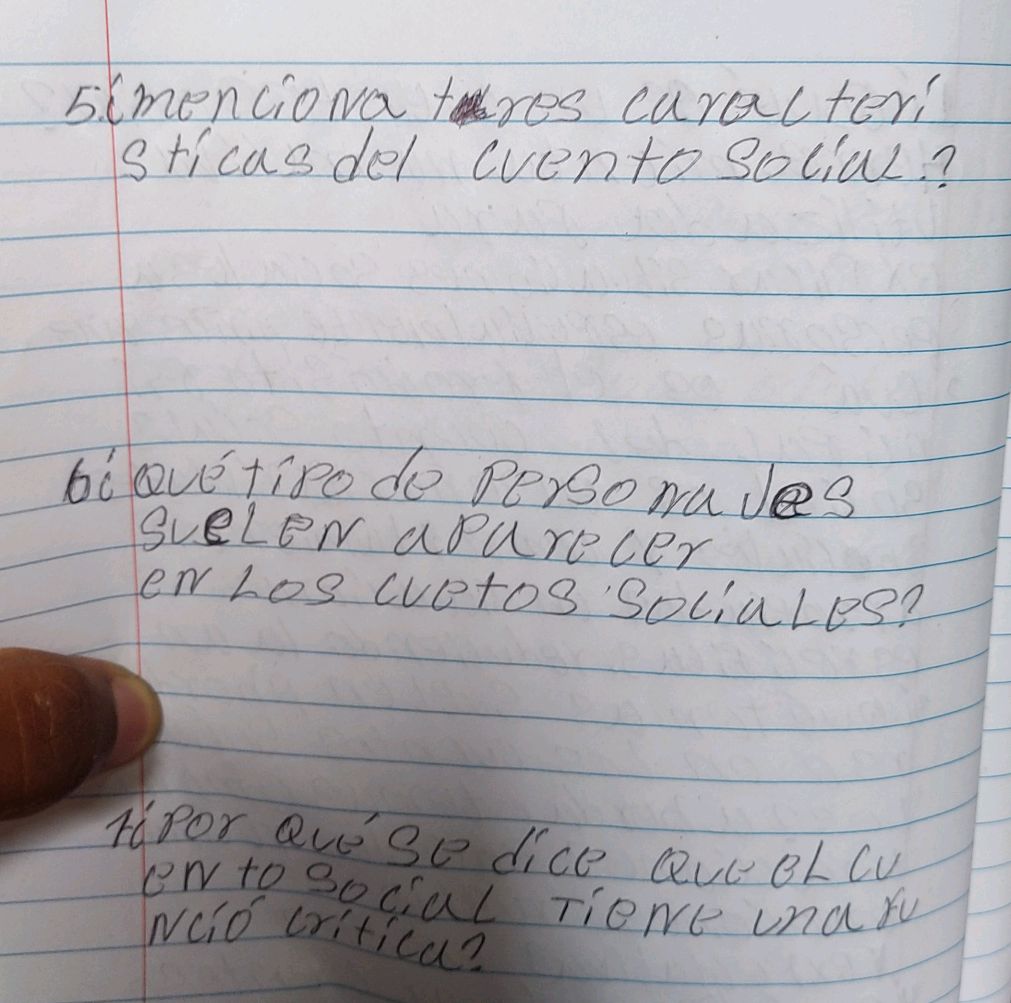 5.¿menciona tres caracterí
sticas del cuento social?
6¿quétipo de personajes
suelen aparecer
en los cuetos sociales?
7¿por qué se dice que el cu
ento social tiene una fu
nció crítica?